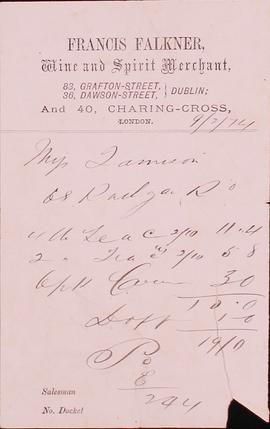 FRANCIS FALKNER,
Wine and Spirit Merchant,
83, GRAFTON-STREET,
36, DAWSON-STREET, } DUBLIN;
And 40, CHARING-CROSS,
LONDON.
9/2/74
Jameson
68
4 lb Tea @ 2/10 11.4
2 " 2/10 5 8
3 0
1 0
19/0
244
Salesman
No. Docket